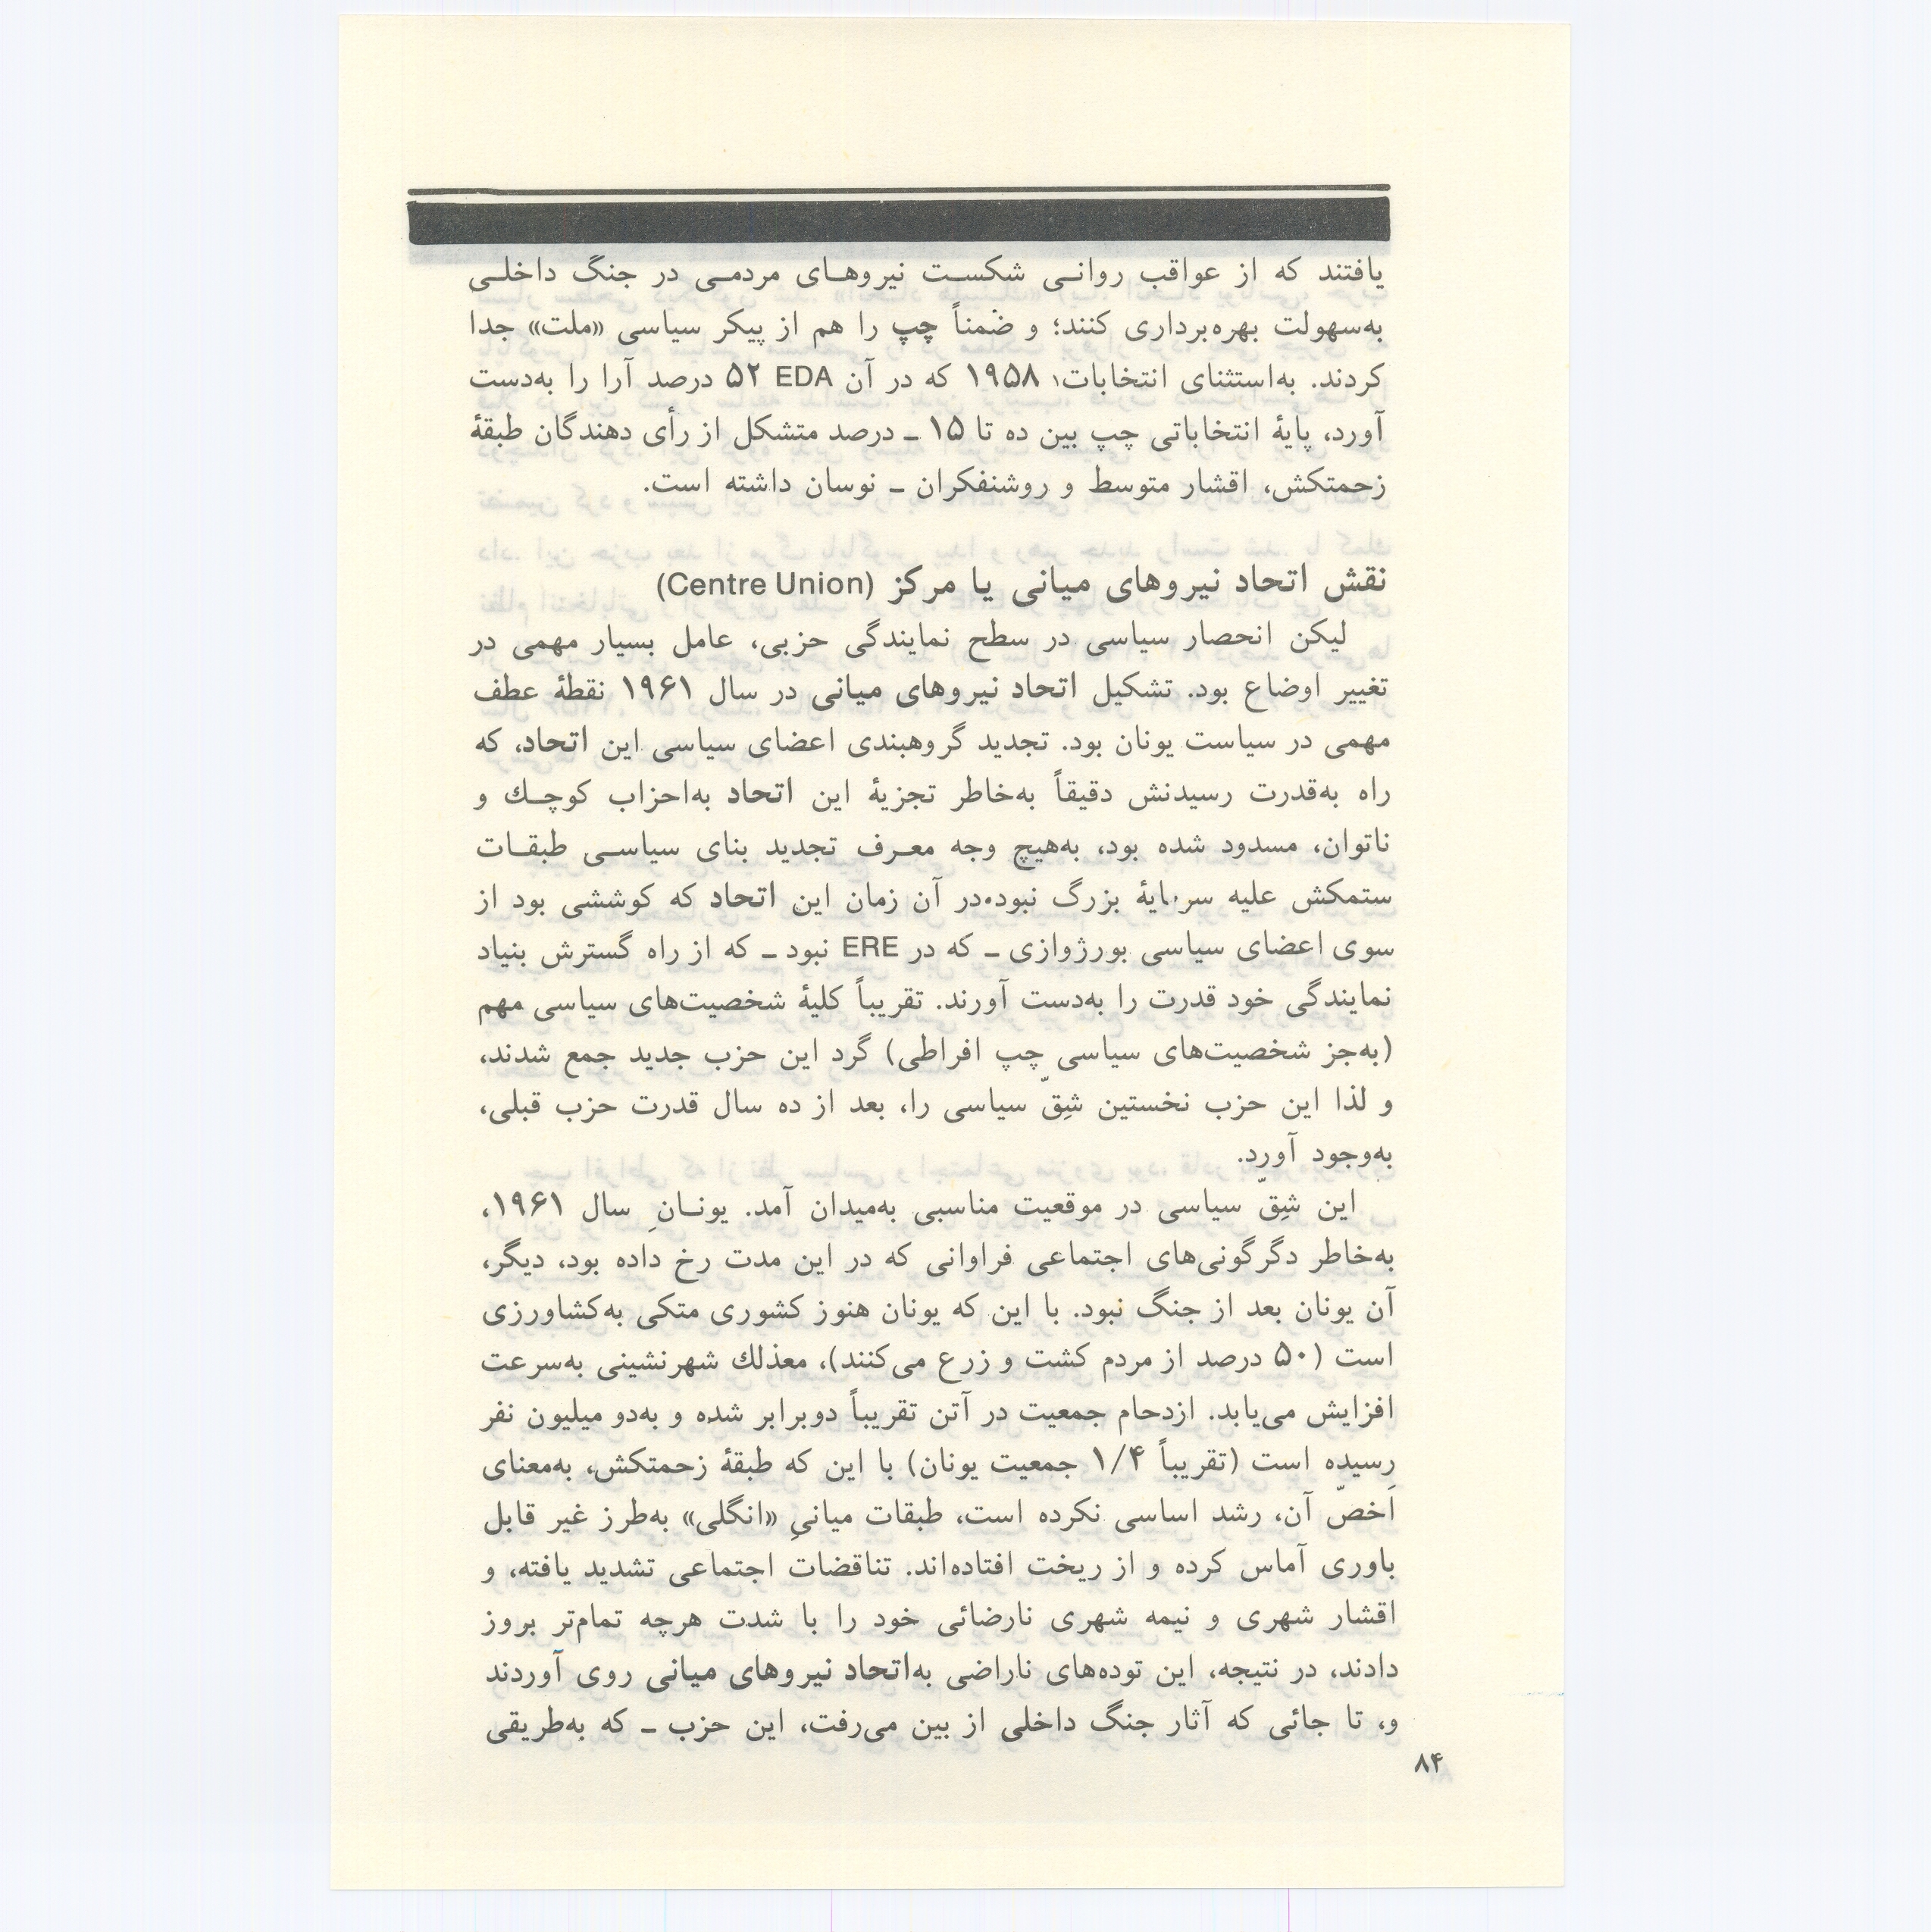 یافتند که از عواقب روانی شکست نیروهای مردمی در جنگ داخلی
به‌سهولت بهره‌برداری کنند؛ و ضمناً چپ را هم از پیکر سیاسی «ملت» جدا
کردند. به‌استثنای انتخابات ۱۹۵۸ که در آن EDA ۵۲ درصد آرا را به‌دست
آورد، پایهٔ انتخاباتی چپ بین ده تا ۱۵ ـ درصد متشکل از رأی دهندگان طبقهٔ
زحمتکش، اقشار متوسط و روشنفکران ـ نوسان داشته است.
نقش اتحاد نیروهای میانی یا مرکز (Centre Union)
لیکن انحصار سیاسی در سطح نمایندگی حزبی، عامل بسیار مهمی در
تغییر اوضاع بود. تشکیل اتحاد نیروهای میانی در سال ۱۹۶۱ نقطهٔ عطف
مهمی در سیاست یونان بود. تجدید گروهبندی اعضای سیاسی این اتحاد، که
راه به‌قدرت رسیدنش دقیقاً به‌خاطر تجزیهٔ این اتحاد به‌احزاب کوچك و
ناتوان، مسدود شده بود، به‌هیچ وجه معرف تجدید بنای سیاسی طبقات
ستمکش علیه سرمایهٔ بزرگ نبود.در آن زمان این اتحاد که کوششی بود از
سوی اعضای سیاسی بورژوازی ـ که در ERE نبود ـ که از راه گسترش بنیاد
نمایندگی خود قدرت را به‌دست آورند. تقریباً کلیهٔ شخصیت‌های سیاسی مهم
(به‌جز شخصیت‌های سیاسی چپ افراطی) گرد این حزب جدید جمع شدند،
و لذا این حزب نخستین شِقّ سیاسی را، بعد از ده سال قدرت حزب قبلی،
به‌وجود آورد.
این شِقّ سیاسی در موقعیت مناسبی به‌میدان آمد. یونانِ سال ۱۹۶۱،
به‌خاطر دگرگونی‌های اجتماعی فراوانی که در این مدت رخ داده بود، دیگر،
آن یونان بعد از جنگ نبود. با این که یونان هنوز کشوری متکی به‌کشاورزی
است (۵۰ درصد از مردم کشت و زرع می‌کنند)، معذلك شهرنشینی به‌سرعت
افزایش می‌یابد. ازدحام جمعیت در آتن تقریباً دوبرابر شده و به‌دو میلیون نفر
رسیده است (تقریباً ۱/۴ جمعیت یونان) با این که طبقهٔ زحمتکش، به‌معنای
اَخصّ آن، رشد اساسی نکرده است، طبقات میانیِ «انگلی» به‌طرز غیر قابل
باوری آماس کرده و از ریخت افتاده‌اند. تناقضات اجتماعی تشدید یافته، و
اقشار شهری و نیمه شهری نارضائی خود را با شدت هرچه تمام‌تر بروز
دادند، در نتیجه، این توده‌های ناراضی به‌اتحاد نیروهای میانی روی آوردند
و، تا جائی که آثار جنگ داخلی از بین می‌رفت، این حزب ـ که به‌طریقی
۸۴